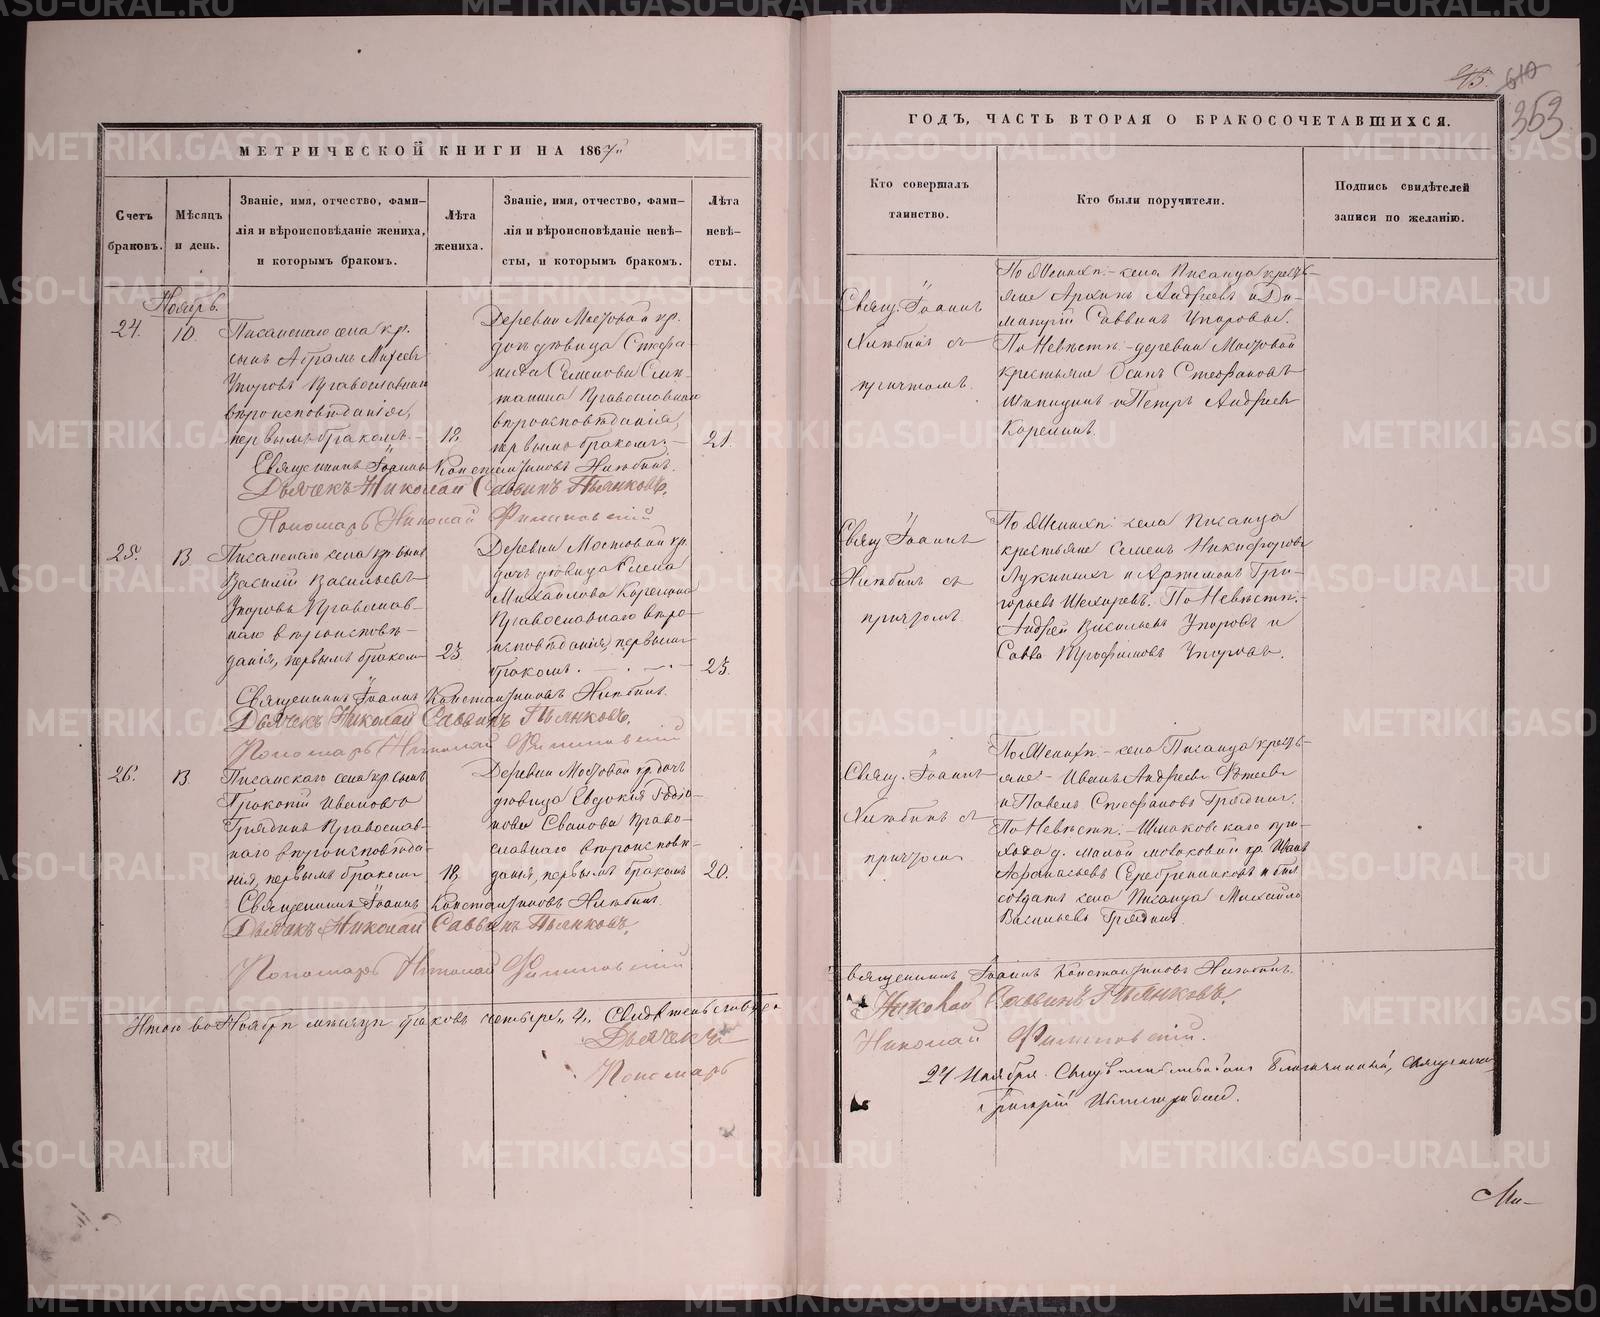 МЕТРИЧЕСКОЙ КНИГИ НА 1867
Счетъ браковъ.
Мѣсяцъ и день.
Званіе, имя, отчество, фами-
лія и вѣроисповѣданіе жениха,
и которымъ бракомъ.
Лѣта жениха.
Званіе, имя, отчество, фами-
лія и вѣроисповѣданіе невѣ-
сты, и которымъ бракомъ.
Лѣта невѣ-
сты.
Ноябрь.
24.
10.
Писанскаго села кр.
сынъ Абрамъ
Упоровъ Православнаго
вѣроисповѣданія,
первымъ бракомъ.
18.
Деревни Мостовой кр.
дочь дѣвица Стефа-
нида Семенова
Православнаго
вѣроисповѣданія,
первымъ бракомъ.
21.
Священникъ Іоаннъ Константиновъ
Дьячекъ Николай Саввинъ Пьянковъ.
Пономарь Николай
25.
13.
Писанскаго села кр. сынъ
Василій Васильевъ
Упоровъ Православ-
наго вѣроисповѣ-
данія, первымъ бракомъ
23.
Деревни Мостовой кр.
дочь дѣвица Елена
Михайлова Корелина
Православнаго вѣро-
исповѣданія, первымъ
бракомъ.
23.
Священникъ Іоаннъ Константиновъ
Дьячекъ Николай Саввинъ Пьянковъ.
Пономарь Николай
26.
13.
Писанскаго села кр. сынъ
Прокопій Ивановъ
Грядинъ Православ-
наго вѣроисповѣда-
нія, первымъ бракомъ
18.
Деревни Мостовой кр. дочь
дѣвица Евдокія Родіо-
нова Право-
славнаго вѣроисповѣ-
данія, первымъ бракомъ
20.
Священникъ Іоаннъ Константиновъ
Дьячекъ Николай Саввинъ Пьянковъ.
Пономарь Николай
Итого въ Ноябрѣ мѣсяцѣ браковъ четыре „4„
Дьячекъ
Пономарь
353
ГОДЪ, ЧАСТЬ ВТОРАЯ О БРАКОСОЧЕТАВШИХСЯ.
Кто совершалъ
таинство.
Кто были поручители.
Подпись свидѣтелей
записи по желанію.
Свящ. Іоаннъ
съ
причтомъ.
По Женихѣ - села Писанца кресть-
яне Архипъ Андреевъ и Ди-
митрій Саввинъ Упоровы.
По Невѣстѣ - деревни Мостовой
крестьяне Осипъ Стефановъ
Шипицинъ и Петръ Андреевъ
Корелинъ.
Свящ. Іоаннъ
съ
причтомъ.
По Женихѣ села Писанца
крестьяне Семенъ Никифоровъ
Лукиныхъ и Артемонъ Гри-
горьевъ По Невѣстѣ.-
Андрей Васильевъ Упоровъ и
Савва Трофимовъ Упоровъ.
Свящ. Іоаннъ
съ
причтомъ
По Женихѣ - села Писанца кресть-
яне - Иванъ Андреевъ Фотеевъ
и Павелъ Стефановъ Грядинъ.
По Невѣстѣ - Шмаковскаго при-
хода д. Малой кр. Иванъ
Афанасьевъ Серебренниковъ и бил.
солдатъ села Писанца Михайло
Васильевъ Грядинъ.
Священникъ Іоаннъ Константиновъ
Николай Саввинъ Пьянковъ.
Николай
27 Ноября Благочинный, Священникъ
Григорій
Ми-
METRIKI.GASO-URAL.RU